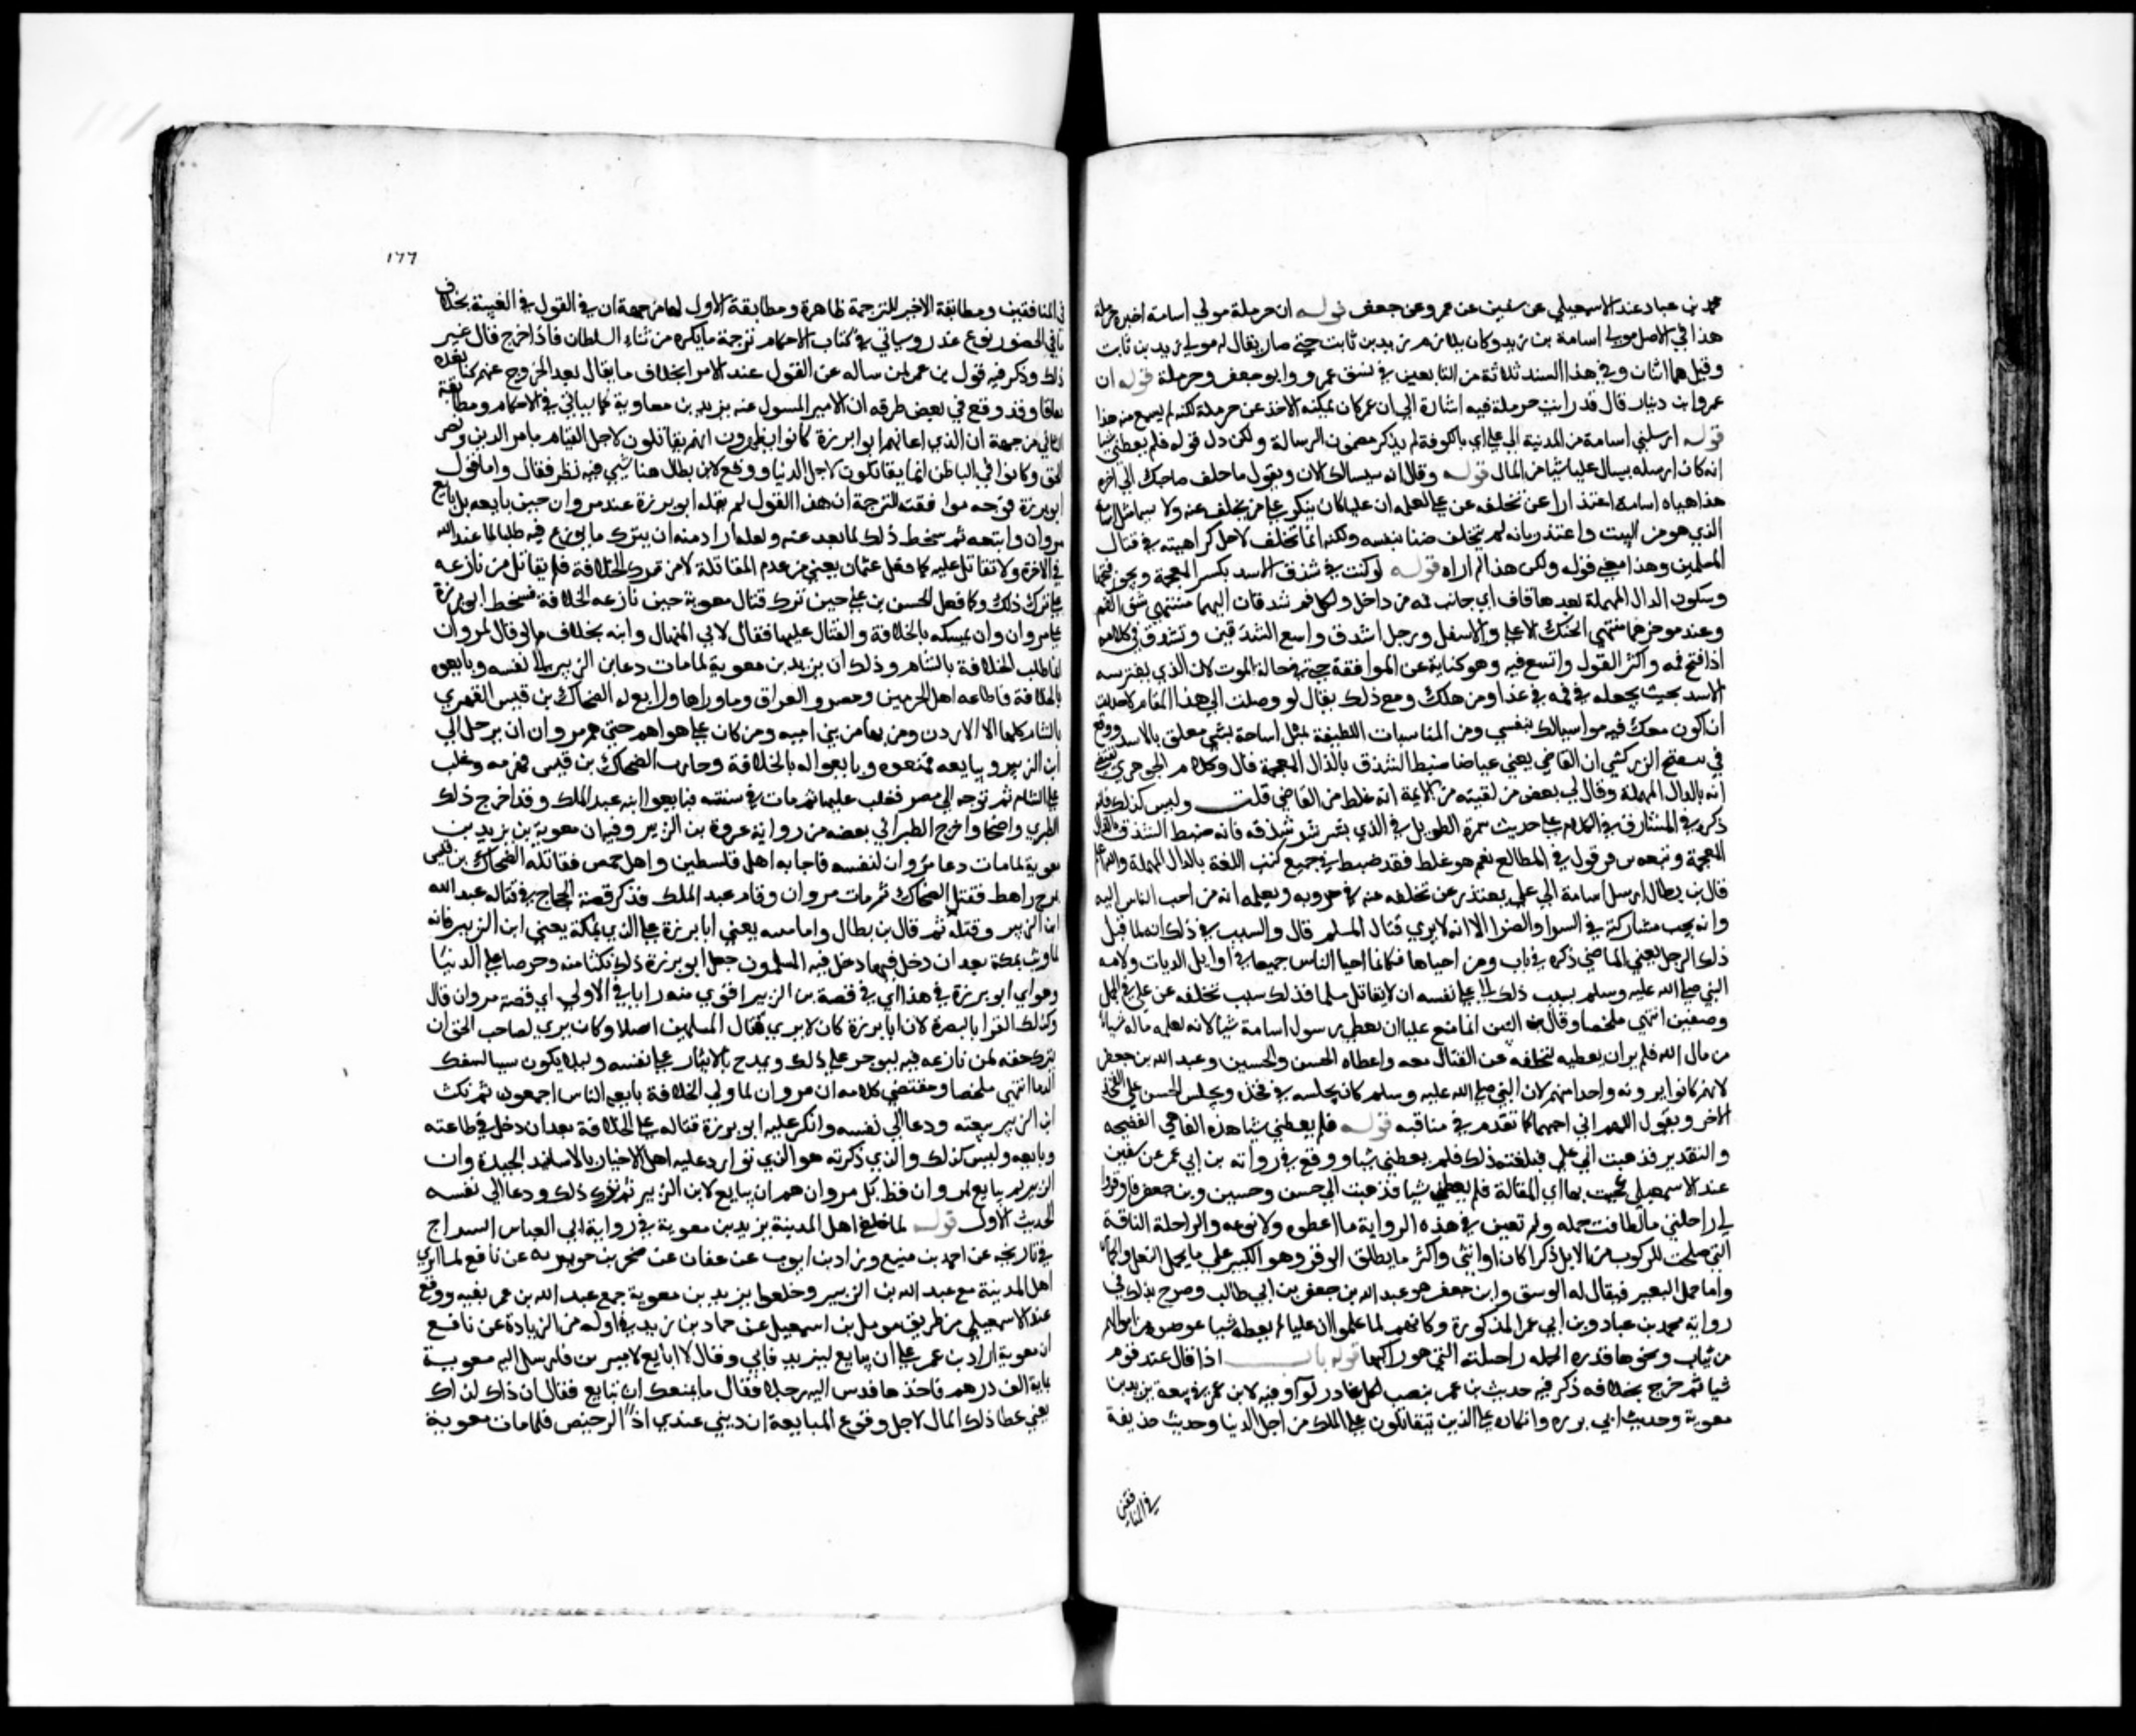 محمد بن عباد عند الاسمعيلي عن سفين عن عمرو عن جعفر قوله ان حرملة مولي اسامة اخبره حرملة
هذا في الاصل مولي اسامة بن زيد وكان يلازم زيد بن ثابت حتي صار يقال له مولي زيد بن ثابت
وقيل هما اثنان وفي هذا السند ثلاثة من التابعين في نسق عمرو وابو جعفر وحرملة قوله ان
عمرو ابن دينار قال قد رايت حرملة فيه اشارة الي ان عمر كان يمكنه الاخذ عن حرملة لكنه لم يسمع منه هذا
قوله ارسلني اسامة من المدينة الي علي اي بالكوفة لم يذكر مضمون الرسالة ولكن دل قوله فلم يعطني شيا
انه كان ارسله يسال عليا شيا من المال قوله وقال انه سيسالك الان ويقول ما خلف صاحبك الي اخره
هذا هياه اسامة اعتذارا عن تخلفه عن علي لعلمه ان عليا كان ينكر علي من يخلف عنه ولا سيما مثل اسامة
الذي هو من البيت واعتذر بانه لم يتخلف ضنا بنفسه ولكنه انما تخلف لاجل كراهيته في قتال
المسلمين وهذا معني قوله ولكن هذا لم اراه قوله لو كنت في شدق الاسد بكسر المعجمة ويجوز فتحها
وسكون الدال المهملة بعدها قاف اي جانب فمه من داخل ولكل فم شدقان اليهما ينتهي شق الفم
وعند موخرهما منتهي الحنك الاعلي والاسفل ورجل اشدق واسع الشدقين وتشدق في كلامه
اذا فتح فمه واكثر القول واتسع فيه وهو كناية عن الموافقة حتي في حالة الموت لان الذي يفترسه
الاسد بحيث يجعله في فمه في عداد من هلك ومع ذلك يقال لو وصلت الي هذا المقام لاحببت
ان اكون معك فيه مواسيا لك بنفسي ومن المناسبات اللطيفة تمثيل اسامة بشي معلق بالاسد ووقع
في تنقيح الزركشي ان القاضي يعني عياضا ضبط الشذق بالذال المعجمة قال وكلام الجوهري يقتضي
انه بالدال المهملة وقال لي بعض من لقيته من الايمة انه غلط من القاضي قلت وليس كذلك فانه
ذكره في المشارق في الكلام علي حديث سمرة الطويل في الذي يشرشر شدقه فانه ضبط الشذق بالذال
المعجمة وتبعه بن قرقول في المطالع نعم هو غلط فقد ضبط في جميع كتب اللغة بالدال المهملة والله اعلم
قال بن بطال ارسل اسامة الي علي يعتذر عن تخلفه عنه في حروبه ويعلمه انه من احب الناس اليه
وانه يحب مشاركته في السرا والضرا الا انه لا يري قتال المسلم قال والسبب في ذلك انه لما قتل
ذلك الرجل يعني الماضي ذكره في باب ومن احياها فكانما احيا الناس جميعا في اوايل الديات ولامه
النبي صلي الله عليه وسلم بسبب ذلك الي علي نفسه ان لا يقاتل مسلما فذلك سبب تخلفه عن علي في الجمل
وصفين انتهي ملخصا وقال بن التين انما منع عليا ان يعطي رسول اسامة شيا لانه لعله ساله شيا
من مال الله فلم ير ان يعطيه لتخلفه عن القتال معه واعطاه الحسن والحسين وعبد الله بن جعفر
لانهم كانوا يرونه واحدا منهم لان النبي صلي الله عليه وسلم كان يجلسه في فخذه ويجلس الحسن علي الفخذ
الاخر ويقول اللهم اني احبهما كما تقدم في مناقبه قوله فلم يعطني شيا هذه الفا هي الفصيحه
والتقدير فذهبت الي علي فبلغته ذلك فلم يعطني شيا ووقع في رواية بن ابي عمر عن سفين
عند الاسمعيلي فجيت بها اي المقالة فلم يعطني شيا فذهبت الي حسن وحسين وبن جعفر فاوقروا
لي راحلتي ما اطاقت حمله ولم تعين في هذه الرواية ما اعطوه ولا نوعه والراحلة الناقة
التي صلحت للركوب من الابل ذكرا كان او انثي واكثر ما يطلق الوقر وهو الكسر علي ما يحمل البغل والحمار
واما حمل البعير فيقال له الوسق وابن جعفر هو عبد الله بن جعفر بن ابي طالب وصرح بذلك في
رواية محمد بن عباد وبن ابي عمر المذكورة وكانهم لما علموا ان عليا لم يعطه شيا عوضوه من اموالهم
من ثياب ونحوها قدر ما تحمله راحلته التي هو راكبها قوله باب اذا قال عند قوم
شيا ثم خرج بخلافه ذكر فيه حديث بن عمر ينصب لكل غادر لواء وفيه لابن عمر في بيعة يزيد بن
معوية وحديث ابي برزه وانكاره علي الذين يتقاتلون علي الملك من اجل الدنيا وحديث حذيفة
في المنافقين
١٦٦
في المنافقين ومطابقة الاخير للترجمة ظاهرة ومطابقة الاول لها من جهة ان في القول في الغيبة بخلاف
ما في الحضور نوع غدر وسياتي في كتاب الاحكام ترجمة ما يكره من ثناء السلطان فاذا خرج قال غير
ذلك وذكر فيه قول بن عمر لمن ساله عن القول عند الامرا بخلاف ما يقال بعد الخروج عنهم كنا نعده
نفاقا وقد وقع في بعض طرقه ان الامير المسول عنه يزيد بن معاوية كما سياتي في الاحكام ومطابقة
الثاني من جهة ان الذي اعابهم ابو برزة كانوا يظهرون انهم يقاتلون لاجل القيام بامر الدين ونصر
الحق وكانوا في الباطن انما يقاتلون لاجل الدنيا ووقع لابن بطال هنا شي فيه نظر فقال واما قول
ابو برزة فوجه موافقته للترجمة ان هذا القول لم يقله ابو برزة عند مروان حين بايعه بل بايع
مروان واتبعه ثم سخط ذلك لما بعد عنه ولعله اراد منه ان يترك ما نوزع فيه طلبا لما عند الله
في الاخرة ولا تقاتل عليه كما فعل عثمان يعني من عدم المقاتلة لا من ترك الخلافة فلم يقاتل من نازعه
علي ترك ذلك وكما فعل الحسن بن علي حين ترك قتال معوية حين نازعه الخلافة فسخط ابو برزة
علي مروان وان تمسكه بالخلافة والقتال عليها فقال لابي المنهال وابنه بخلاف ما قال لمروان
لما طلب الخلافة بالشام وذلك ان يزيد بن معوية لما مات دعا بن الزبير الي نفسه وبايعوه
بالخلافة فاطاعه اهل الحرمين ومصر والعراق وما وراها وبايع له الضحاك بن قيس الفهري
بالشام كلها الا الاردن ومن بها من بني اميه ومن كان علي هواهم حتي هم مروان ان يرحل الي
ابن الزبير ويبايعه فمنعوه وبايعوا له بالخلافة وحارب الضحاك بن قيس فهزمه وغلب
علي الشام ثم توجه الي مصر فغلب عليها ثم مات في سنته فبايعوا ابنه عبد الملك وقد اخرج ذلك
الطبري واضحا واخرج الطبراني بعضه من رواية عروة بن الزبير وفيه ان معوية بن يزيد بن
معوية لما مات دعا مروان لنفسه فاجابه اهل فلسطين واهل حمص فقاتله الضحاك بن قيس
بمرج راهط فقتل الضحاك ثم مات مروان وقام عبد الملك فذكر قصة الحجاج في قتاله عبد الله
ابن الزبير وقتله ثم قال بن بطال واما يعني ابا برزة علي الذي بمكة يعني ابن الزبير فانه
لما وثب بمكة بعد ان دخل فيما دخل فيه المسلمون جعل ابو برزة ذلك نكثا منه وحرصا علي الدنيا
وهو اي ابو برزة في هذا اي في قصة بن الزبير اقوي منه رايا في الاولي اي قصة مروان قال
وكذلك القرا بالبصرة لان ابا برزة كان لا يري قتال المسلمين اصلا وكان يري لصاحب الحق ان
يترك حقه لمن نازعه فيه ليوجر علي ذلك ويمدح بالايثار علي نفسه وليلا يكون سببا لسفك
الدما انتهي ملخصا ومقتضي كلامه ان مروان لما ولي الخلافة بايعه الناس اجمعون ثم نكث
ابن الزبير بيعته ودعا الي نفسه وانكر عليه ابو برزة قتاله علي الخلافة بعد ان دخل في طاعته
وبايعه وليس كذلك والذي ذكرته هو الذي توارد عليه اهل الاخبار بالاسانيد الجيدة وان
الزبير لم يبايع لمروان قط بل مروان هم ان يبايع لابن الزبير ثم ترك ذلك ودعا الي نفسه
الحديث الاول قوله لما خلع اهل المدينة يزيد بن معوية في رواية ابي العباس السراج
في تاريخه عن احمد بن منيع وزياد بن ايوب عن عفان عن صخر بن جويرية عن نافع لما انتزي
اهل المدينة مع عبد الله بن الزبير وخلعوا يزيد بن معوية جمع عبد الله بن عمر بنيه ووقع
عند الاسمعيلي من طريق مومل بن اسمعيل عن حماد بن زيد في اوله من الزيادة عن نافع
ان معوية اراد بن عمر علي ان يبايع ليزيد فابي وقال لا ابايع لاميرين فارسل اليه معوية
بماية الف درهم فاخذها فدس اليه رجلا فقال ما يمنعك ان تبايع فقال ان ذاك لذاك
يعني عطا ذلك المال لاجل وقوع المبايعة ان ديني عندي اذا لرخيص فلما مات معوية